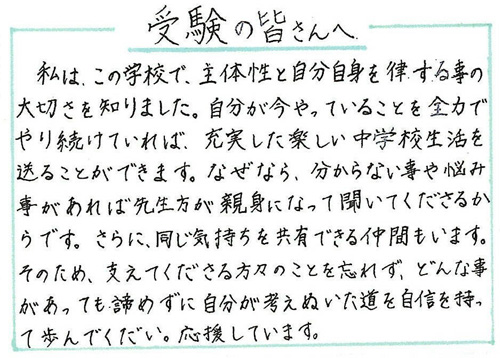 受験の皆さんへ
私は、この学校で、主体性と自分自身を律する事の
大切さを知りました。自分が今やっていることを全力で
やり続けていれば、充実した楽しい中学校生活を
送ることができます。なぜなら、分からない事や悩み
事があれば先生方が親身になって聞いてくださるか
らです。さらに、同じ気持ちを共有できる仲間もいます。
そのため、支えてくださる方々のことを忘れず、どんな事
があっても諦めずに自分が考えぬいた道を自信を持っ
て歩んでくだい。応援しています。